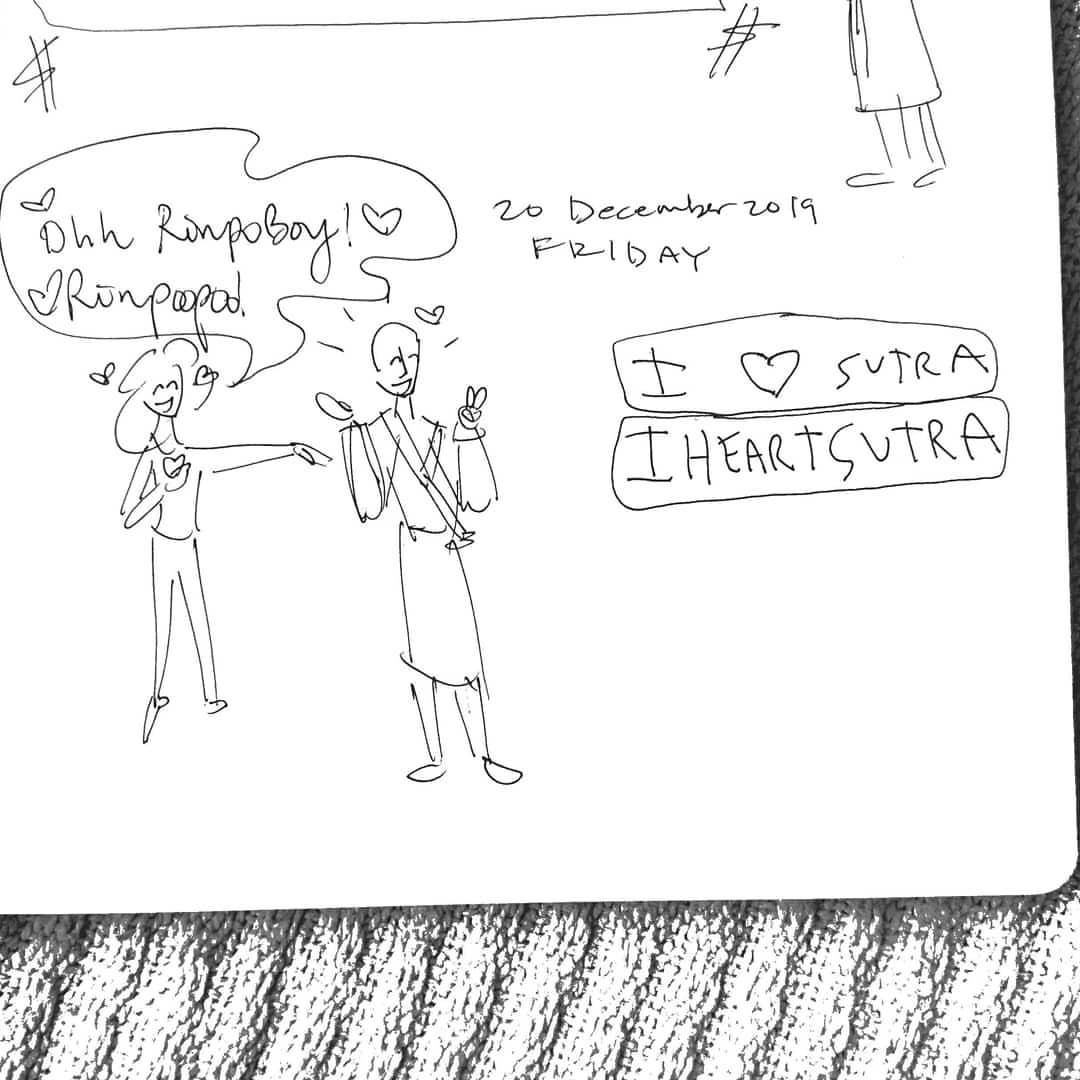 Ohh RinpoBoy!
Rinpoopoo!
20 December 2019
FRIDAY
I ♡ SUTRA
I HEART SUTRA